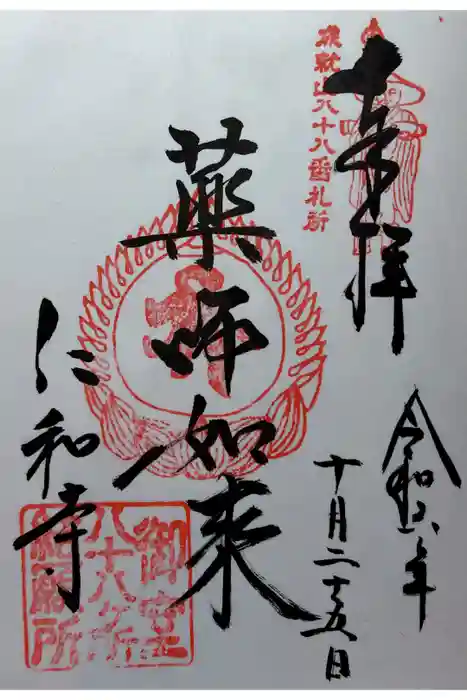 奉拝
成就山八十八番札所
令和六年
十月二十五日
薬師如来
仁和寺
御室
八十八ケ所
結願所